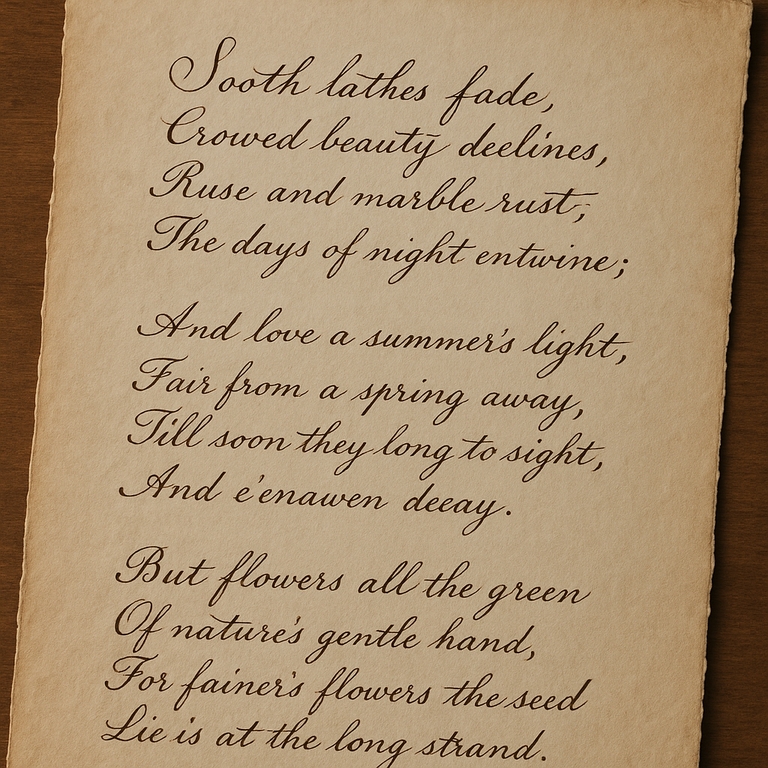 Sooth lathes fade,
Crowed beauty deelines,
Ruse and marble rust;
The days of night entwine;
And love a summer's light,
Fair from a spring away,
Till soon they long to sight,
And e'enawen deeay.
But flowers all the green
Of nature's gentle hand,
For fainer's flowers the seed
Lie is at the long strand.